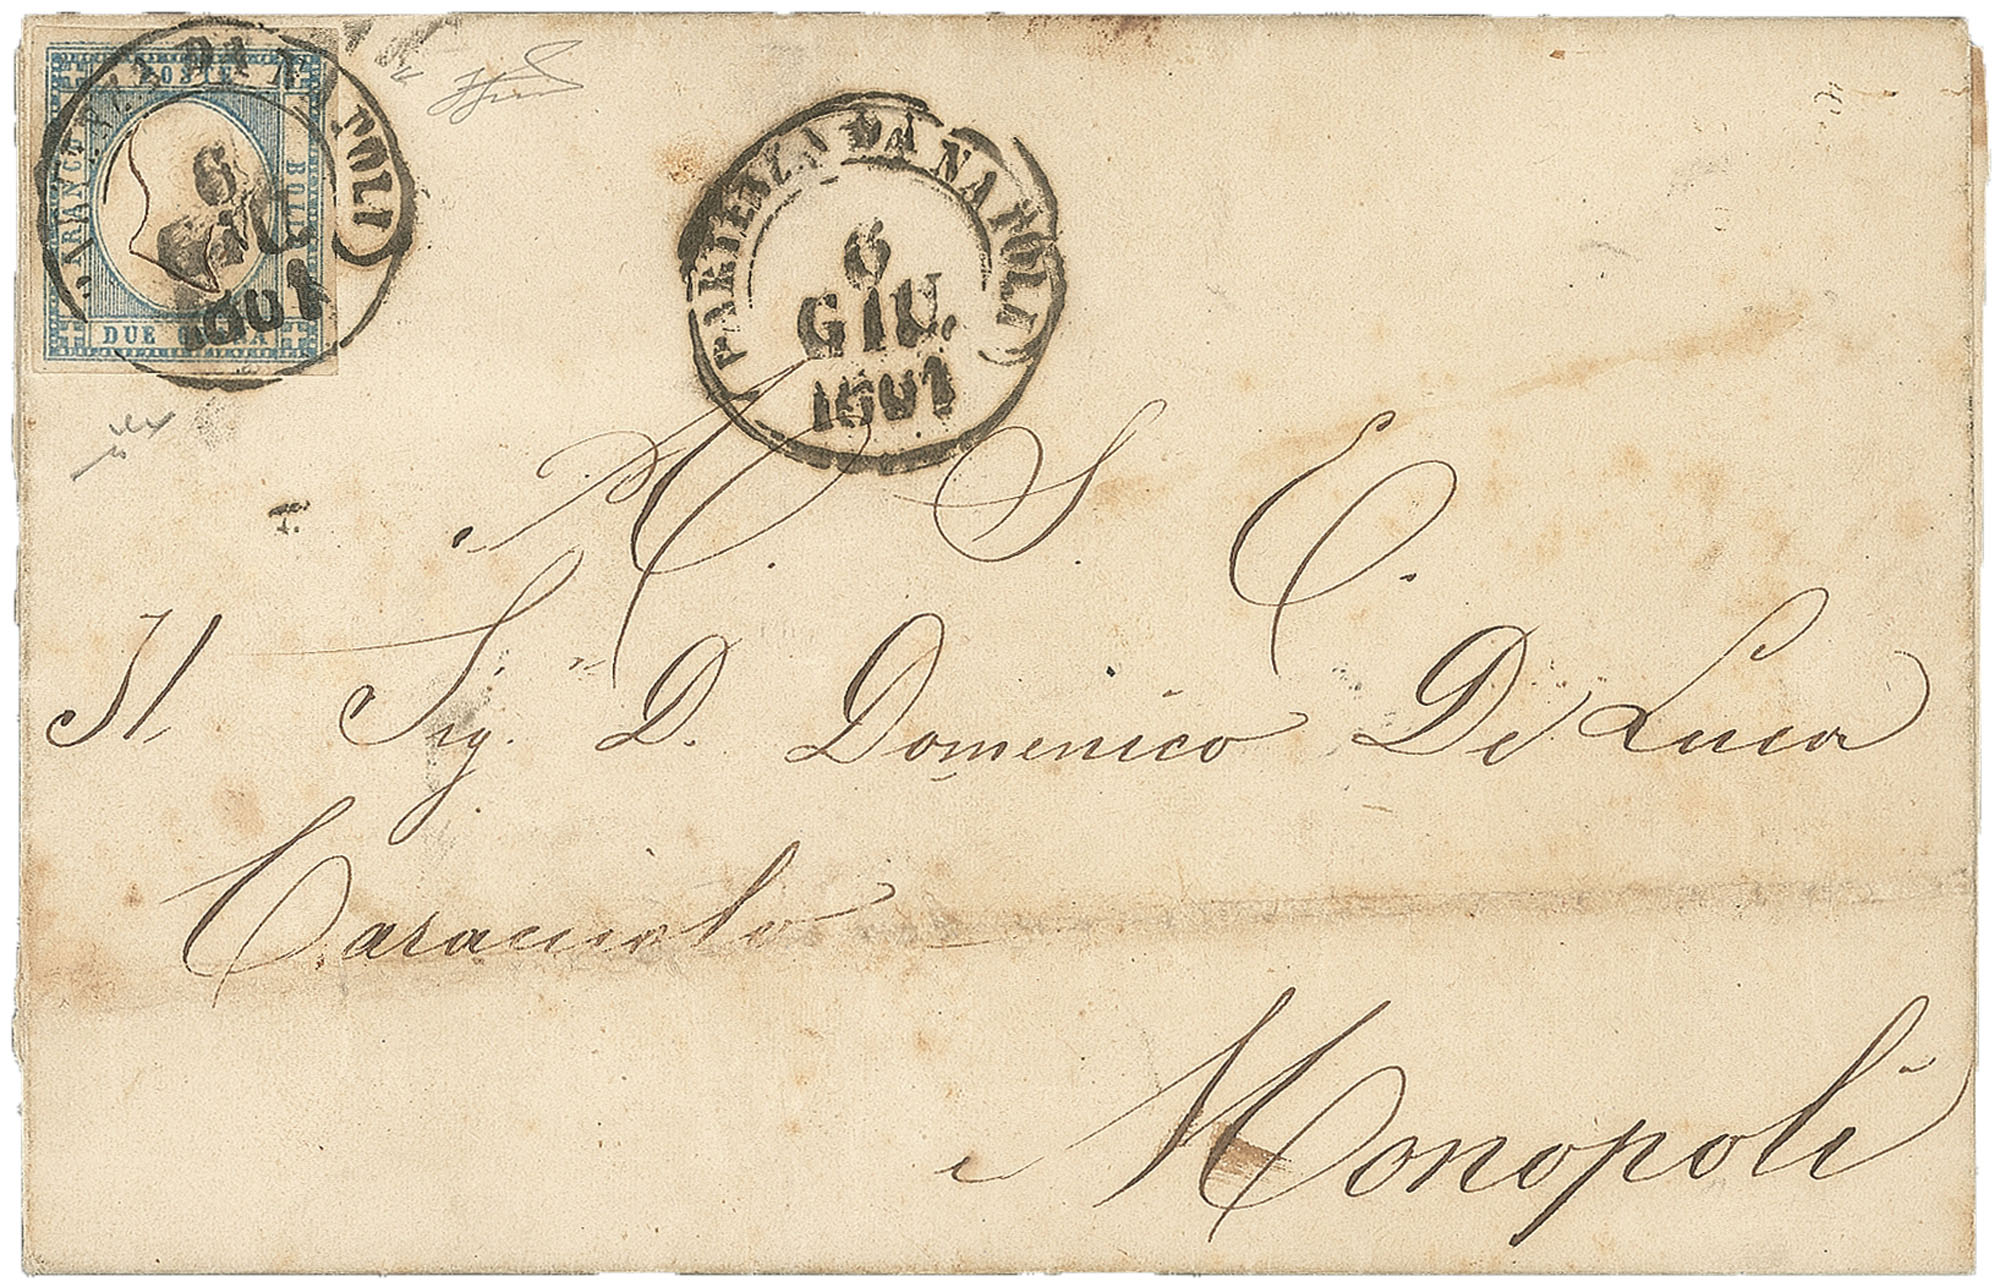 POSTE
FRANCO
BOLLO
DUE GRANA
PARTENZA DA NAPOLI
6
GIU.
1861
PARTENZA DA NAPOLI
6
GIU.
1861
A. S. E.
Il Sig. D. Domenico De Luca
Caracciolo
Monopoli